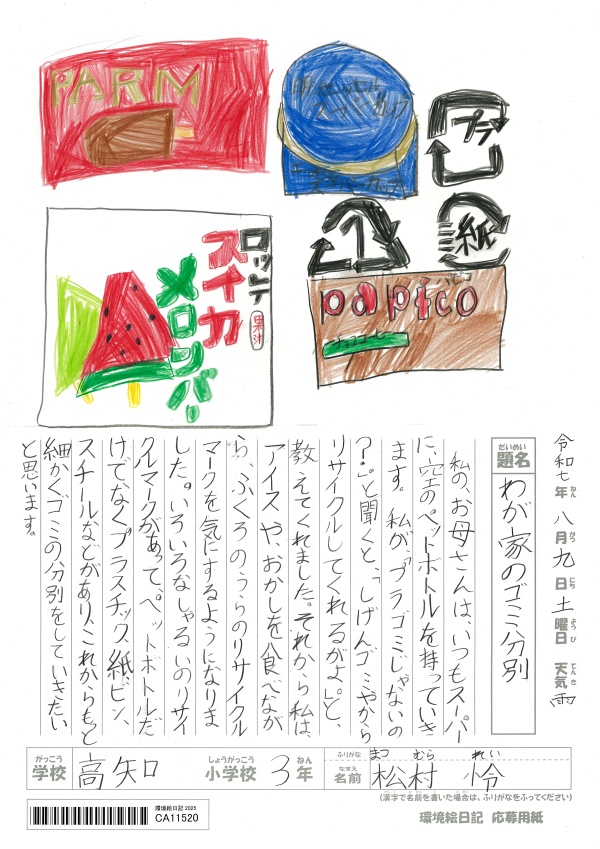 PARM
スーパーカップ
プラ
1
紙
ロッテ
スイカ
メロンバー
果汁
パピコ
papico
チョココーヒー
令和七年八月九日土曜日 天気雨
ねん がつ にち ようび てんき
だいめい
題名
わが家のゴミ分別
私の、お母さんは、いつもスーパー
に、空のペットボトルを持っていき
ます。私が、「プラゴミじゃないの
?」と聞くと、「しげんゴミやから
リサイクルしてくれるがよ。」と、
教えてくれました。それから私は、
アイスや、おかしを食べなが
ら、ふくろのうらのリサイクル
マークを気にするようになりま
した。いろいろなしゃるいのリサイ
クルマークがあって、ペットボトルだ
けでなくプラスチック、紙、ビン、
スチールなどがあり、これからもっと
細かくゴミの分別をしていきたい
と思います。
がっこう しょうがっこう ねん
学校 高知 小学校 3年
ふりがな まつ むら れい
なまえ
名前 松村 怜
(漢字で名前を書いた場合は、ふりがなをふってください)
環境絵日記 2025
CA11520
環境絵日記 応募用紙